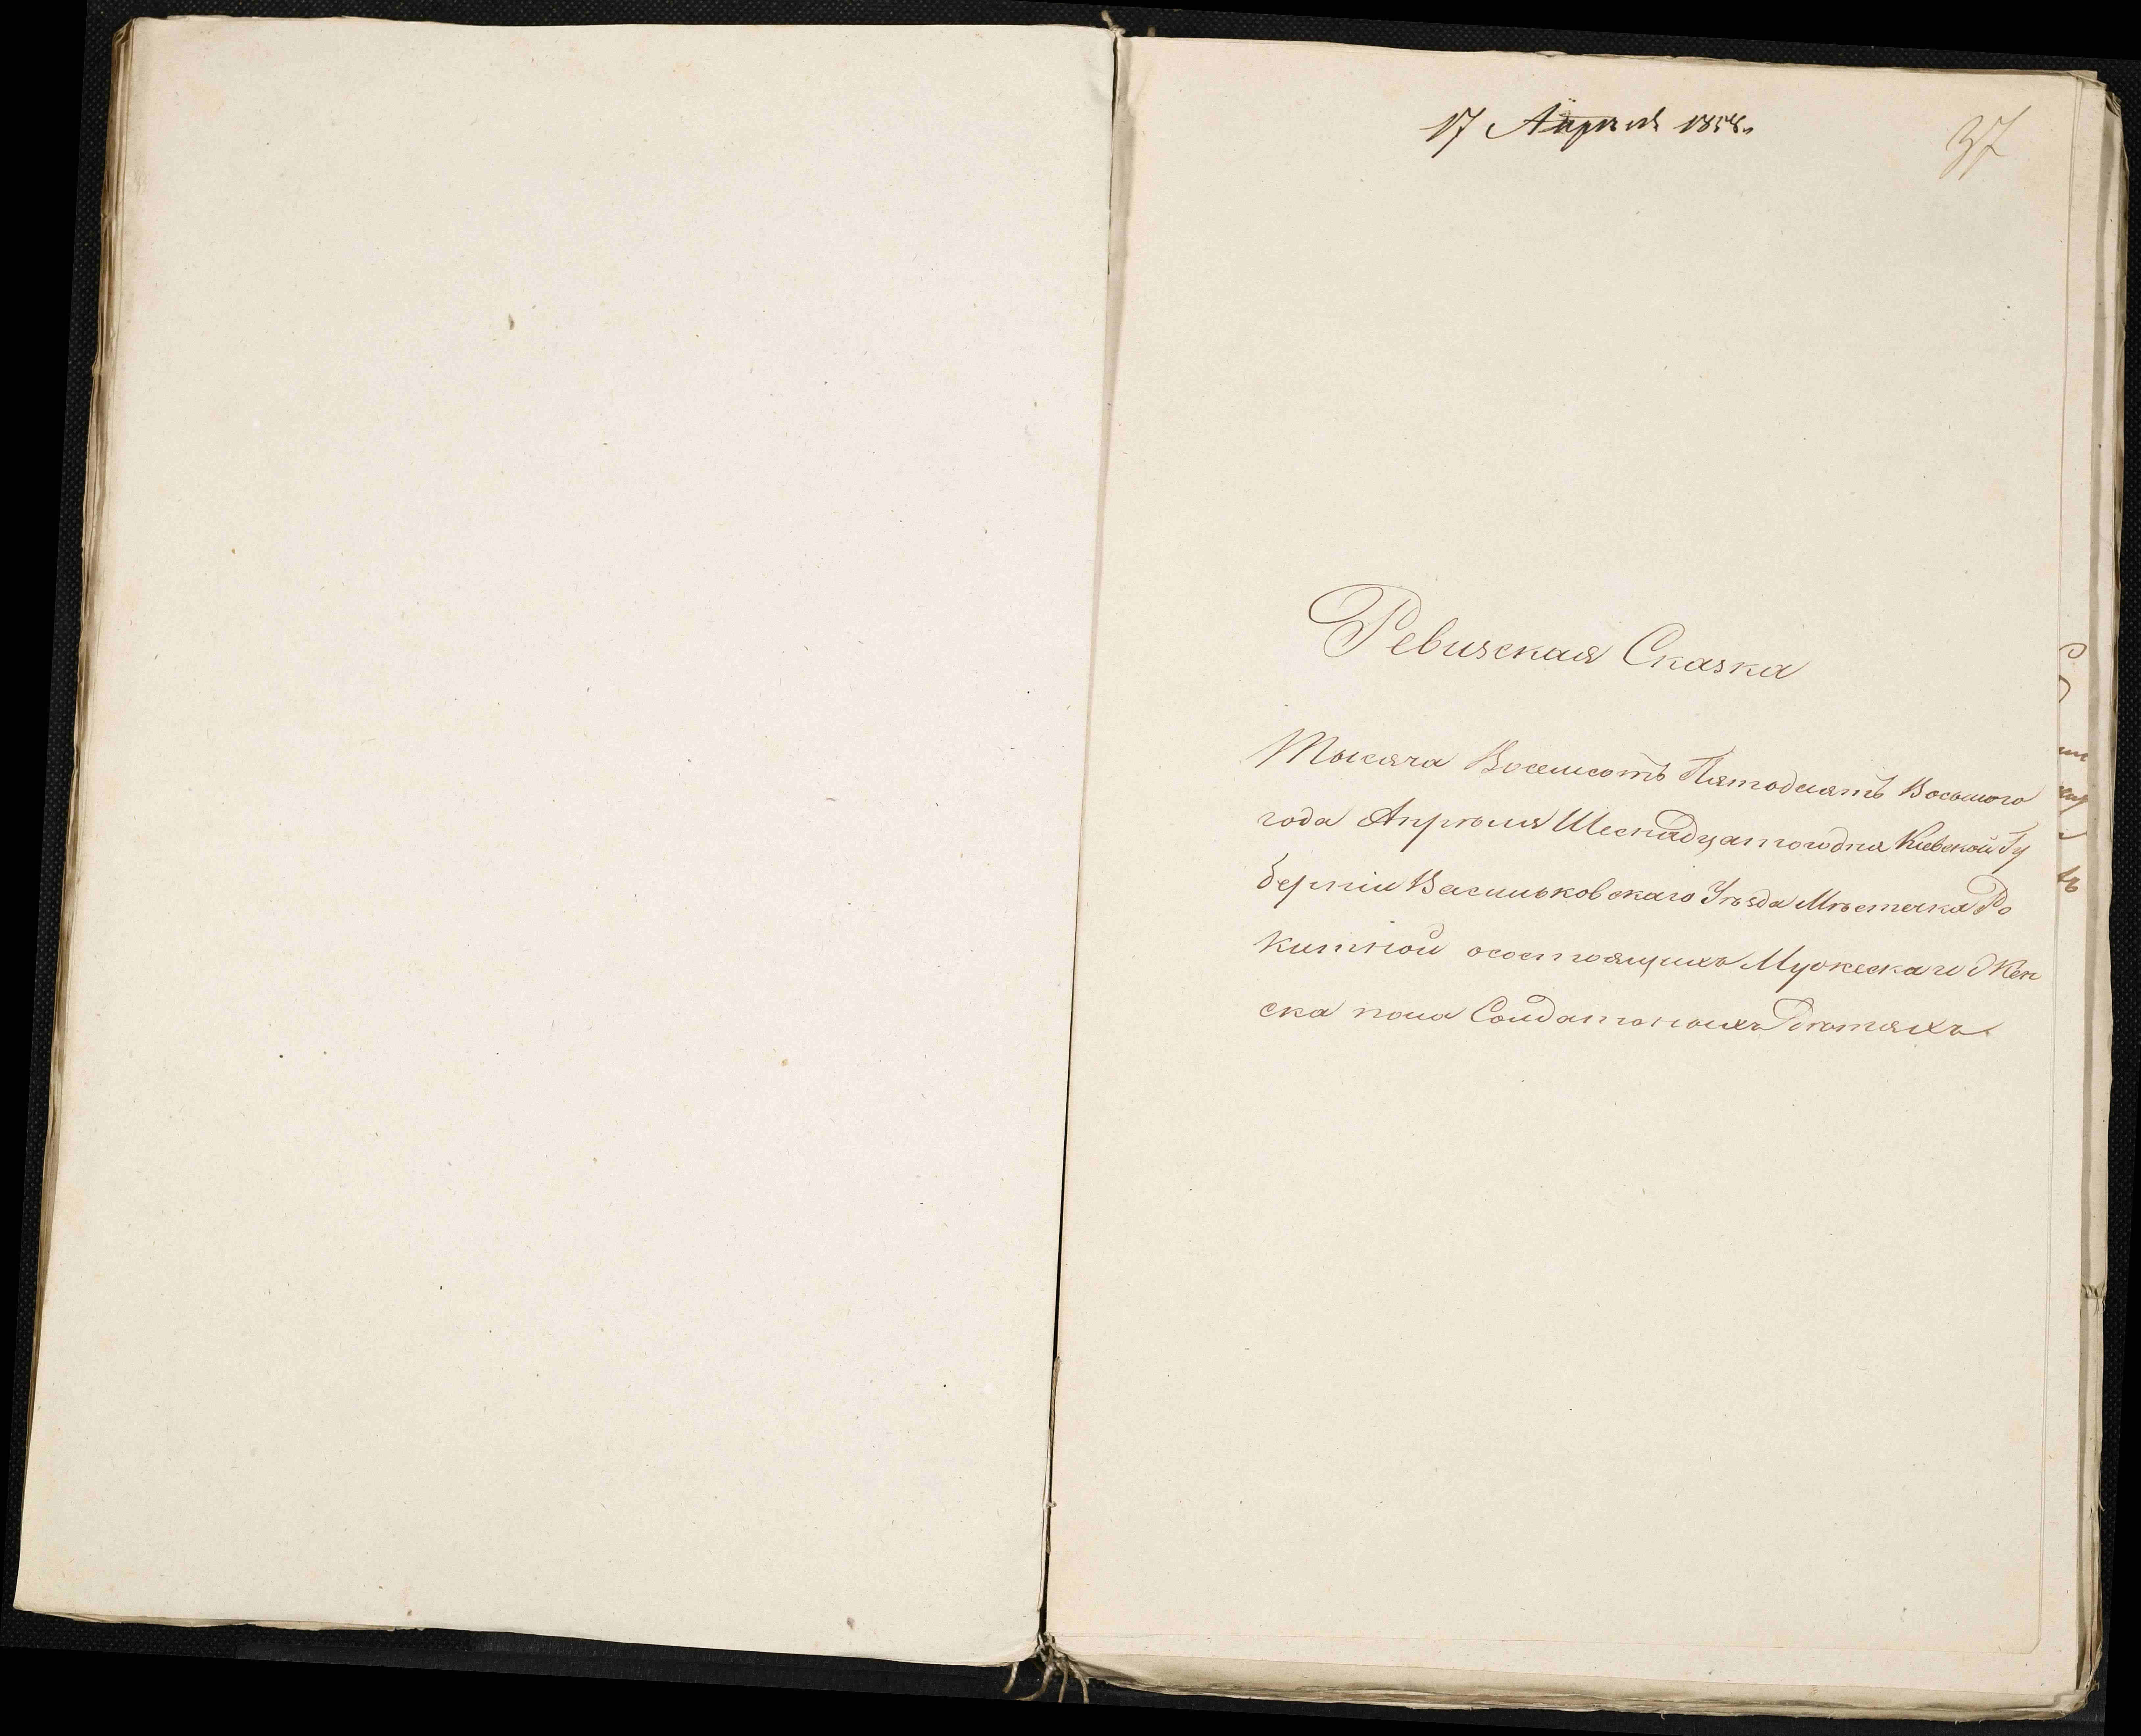 17 Апреля 1858.
37
Ревизская Сказка
Тысяча Восемсотъ Пятодсятъ Восьмого
года Апрѣля Шеснадцатогодня Киевской Гу
берніи Васильковскаго Уѣзда Мѣстечка Ро
китной осостоящихъ Мужескаго Жен
ска пола Солдатскихъ Дѣтяхъ